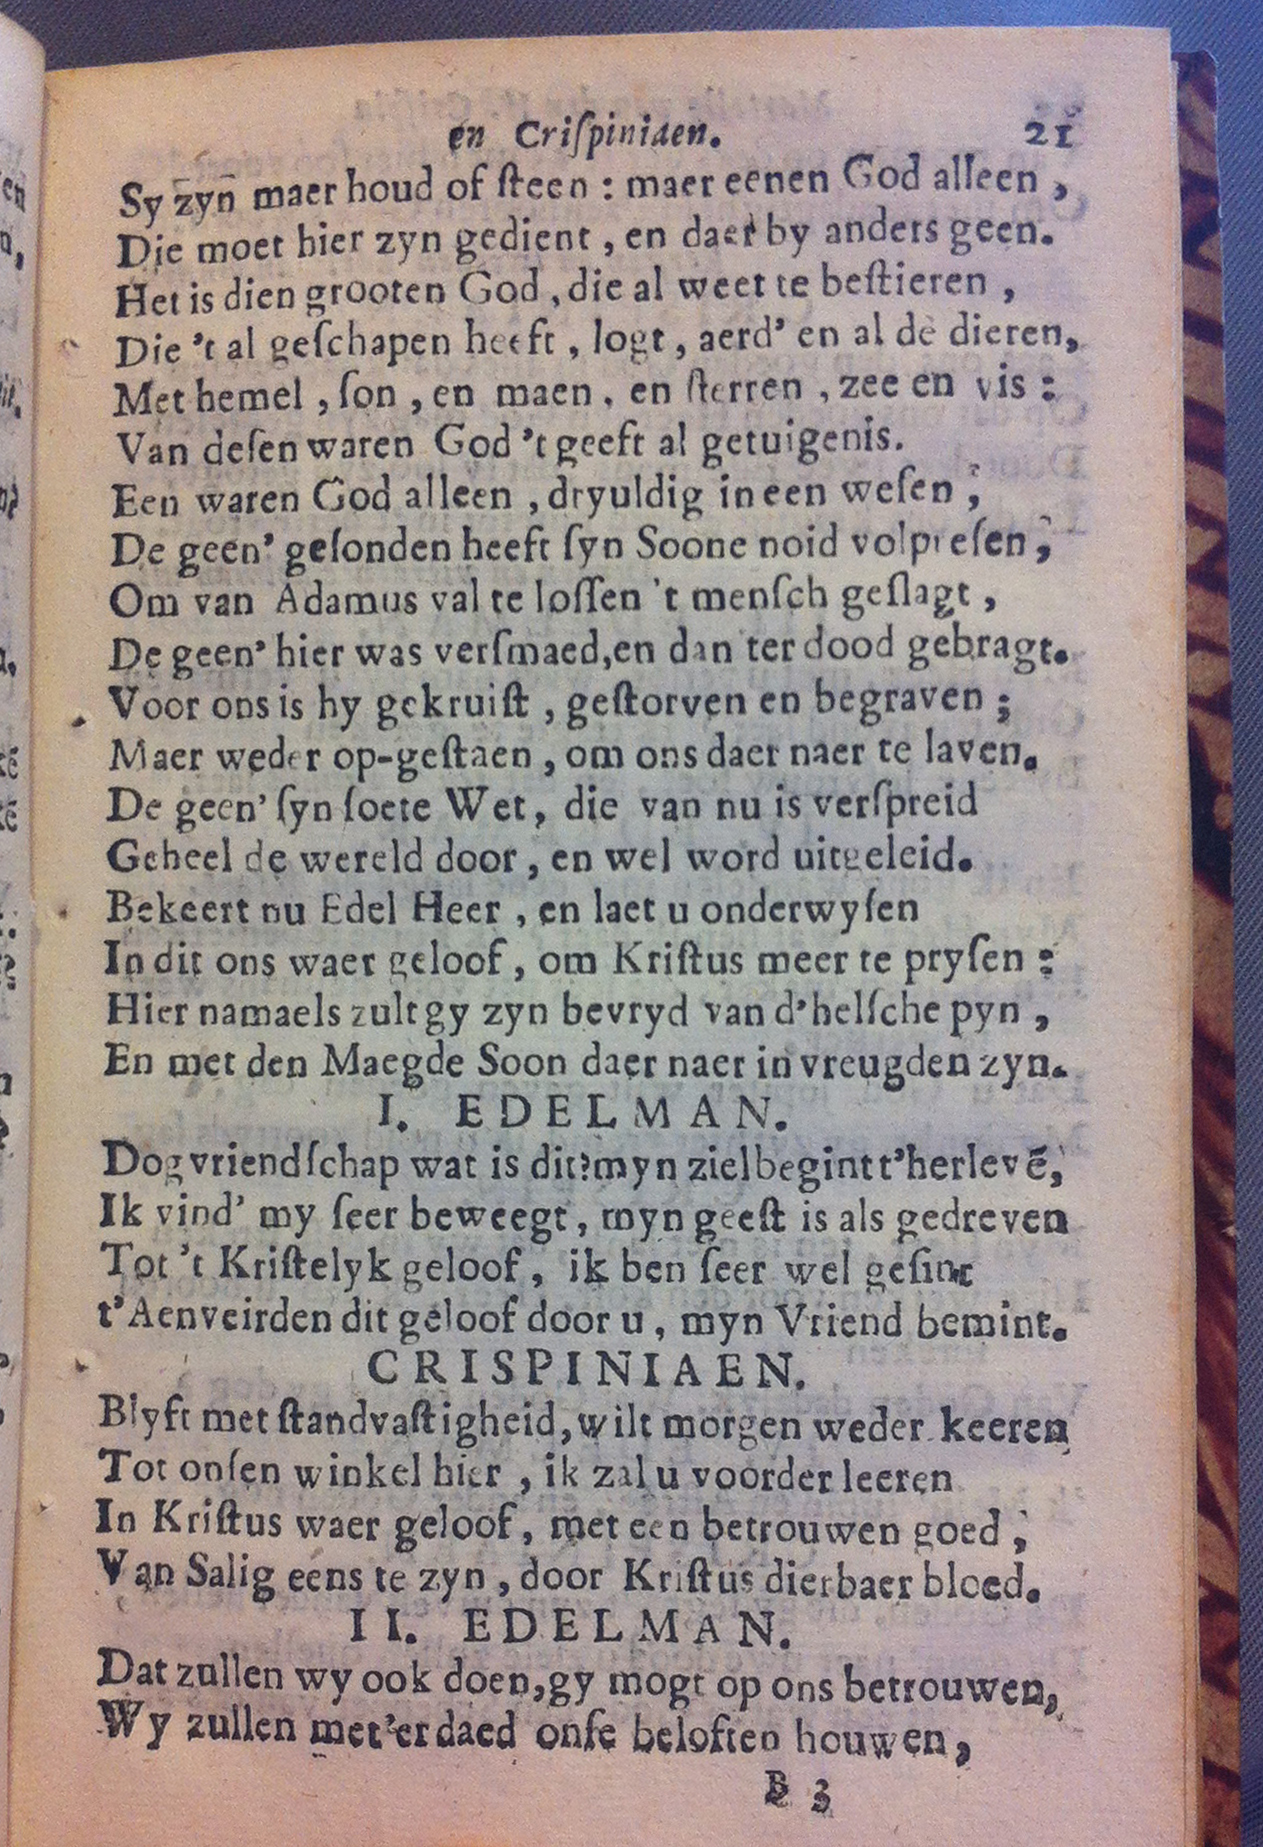 en Criſpiniaen. 21
Sy zyn maer houd of ſteen : maer eenen God alleen ,
Die moet hier zyn gedient , en daer by anders geen.
Het is dien grooten God , die al weet te beſtieren ,
Die 't al geſchapen heeft , logt , aerd' en al de dieren,
Met hemel , ſon , en maen , en ſterren , zee en vis :
Van deſen waren God 't geeft al getuigenis.
Een waren God alleen , dryuldig in een weſen ,
De geen' geſonden heeft ſyn Soone noid volpreſen ,
Om van Adamus val te loſſen 't menſch geſlagt ,
De geen' hier was verſmaed,en dan ter dood gebragt.
Voor ons is hy gekruiſt , geſtorven en begraven ;
Maer weder op-geſtaen , om ons daer naer te laven.
De geen' ſyn ſoete Wet, die van nu is verſpreid
Geheel de wereld door , en wel word uitgeleid.
Bekeert nu Edel Heer , en laet u onderwyſen
In dit ons waer geloof , om Kriſtus meer te pryſen :
Hier namaels zult gy zyn bevryd van d'helſche pyn ,
En met den Maegde Soon daer naer in vreugden zyn.
I. EDELMAN.
Dog vriendſchap wat is dit?myn ziel begint t'herlevē,
Ik vind' my ſeer beweegt , myn geeſt is als gedreven
Tot 't Kriſtelyk geloof , ik ben ſeer wel geſint
t'Aenveirden dit geloof door u , myn Vriend bemint.
CRISPINIAEN.
Blyft met ſtandvaſtigheid, wilt morgen weder keeren
Tot onſen winkel hier , ik zal u voorder leeren
In Kriſtus waer geloof , met een betrouwen goed ,
Van Salig eens te zyn , door Kriſtus dierbaer bloed.
II. EDELMAN.
Dat zullen wy ook doen,gy mogt op ons betrouwen,
Wy zullen met'er daed onſe beloften houwen ,
B 3